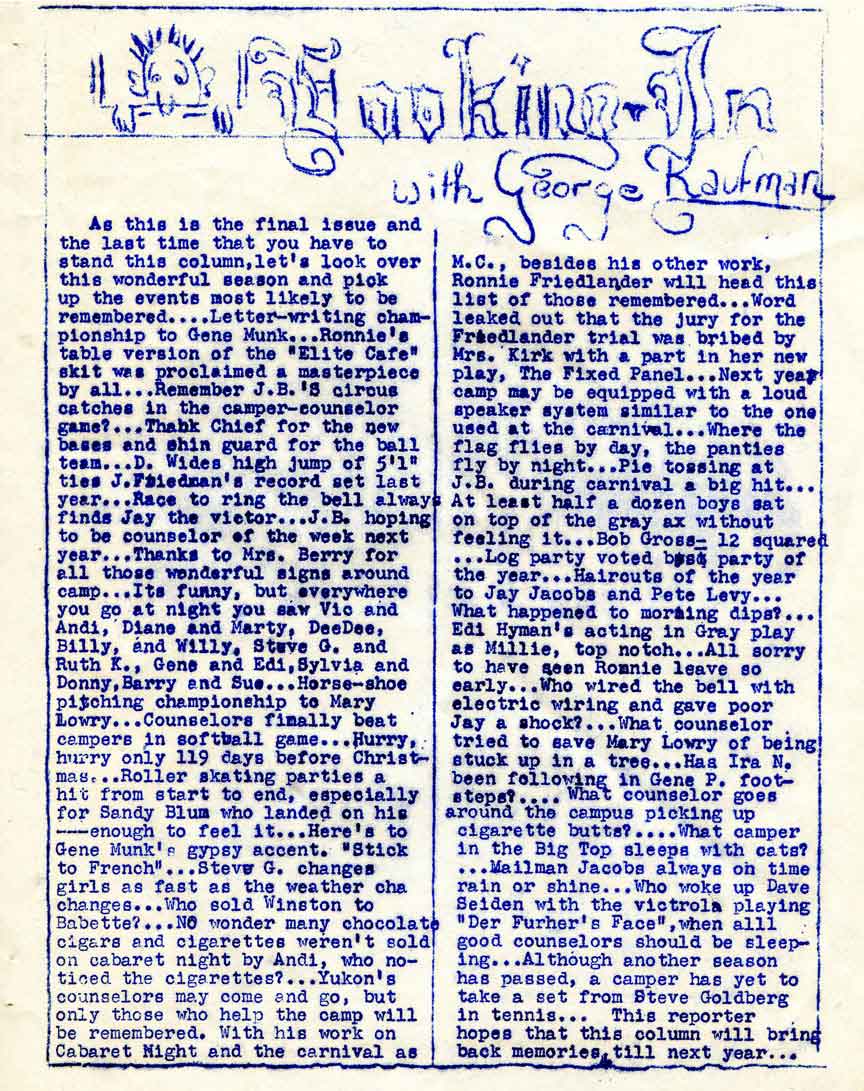 Looking-In
with George Kaufman
As this is the final issue and
the last time that you have to
stand this column,let's look over
this wonderful season and pick
up the events most likely to be
remembered....Letter-writing cham-
pionship to Gene Munk...Ronnie's
table version of the "Elite Cafe"
skit was proclaimed a masterpiece
by all...Remember J.B.'S circus
catches in the camper-counselor
game?...Thabk Chief for the new
bases and shin guard for the ball
team...D. Wides high jump of 5'1"
ties J.Friedman's record set last
year...Race to ring the bell always
finds Jay the victor...J.B. hoping
to be counselor of the week next
year...Thanks to Mrs. Berry for
all those wonderful signs around
camp...Its funny, but everywhere
you go at night you saw Vic and
Andi, Diane and Marty, DeeDee,
Billy, and Willy, Steve G. and
Ruth K., Gene and Edi,Sylvia and
Donny,Barry and Sue...Horse-shoe
pitching championship to Mary
Lowry...Counselors finally beat
campers in softball game...Hurry,
hurry only 119 days before Christ-
mas...Roller skating parties a
hit from start to end, especially
for Sandy Blum who landed on his
----enough to feel it...Here's to
Gene Munk's gypsy accent. "Stick
to French"...Steve G. changes
girls as fast as the weather cha
changes...Who sold Winston to
Babette?...NO wonder many chocolate
cigars and cigarettes weren't sold
on cabaret night by Andi, who no-
ticed the cigarettes?...Yukon's
counselors may come and go, but
only those who help the camp will
be remembered. With his work on
Cabaret Night and the carnival as
M.C., besides his other work,
Ronnie Friedlander will head this
list of those remembered...Word
leaked out that the jury for the
Friedlander trial was bribed by
Mrs. Kirk with a part in her new
play, The Fixed Panel...Next year
camp may be equipped with a loud
speaker system similar to the one
used at the carnival...Where the
flag flies by day, the panties
fly by night...Pie tossing at
J.B. during carnival a big hit...
At least half a dozen boys sat
on top of the gray ax without
feeling it...Bob Gross- 12 squared
...Log party voted best party of
the year...Haircuts of the year
to Jay Jacobs and Pete Levy...
What happened to morning dips?...
Edi Hyman's acting in Gray play
as Millie, top notch...All sorry
to have seen Ronnie leave so
early...Who wired the bell with
electric wiring and gave poor
Jay a shock?...What counselor
tried to save Mary Lowry of being
stuck up in a tree...Has Ira N.
been following in Gene P. foot-
steps?.... What counselor goes
around the campus picking up
cigarette butts?....What camper
in the Big Top sleeps with cats?
...Mailman Jacobs always on time
rain or shine...Who woke up Dave
Seiden with the victrola playing
"Der Furher's Face",when alll
good counselors should be sleep-
ing...Although another season
has passed, a camper has yet to
take a set from Steve Goldberg
in tennis... This reporter
hopes that this column will bring
back memories,till next year...